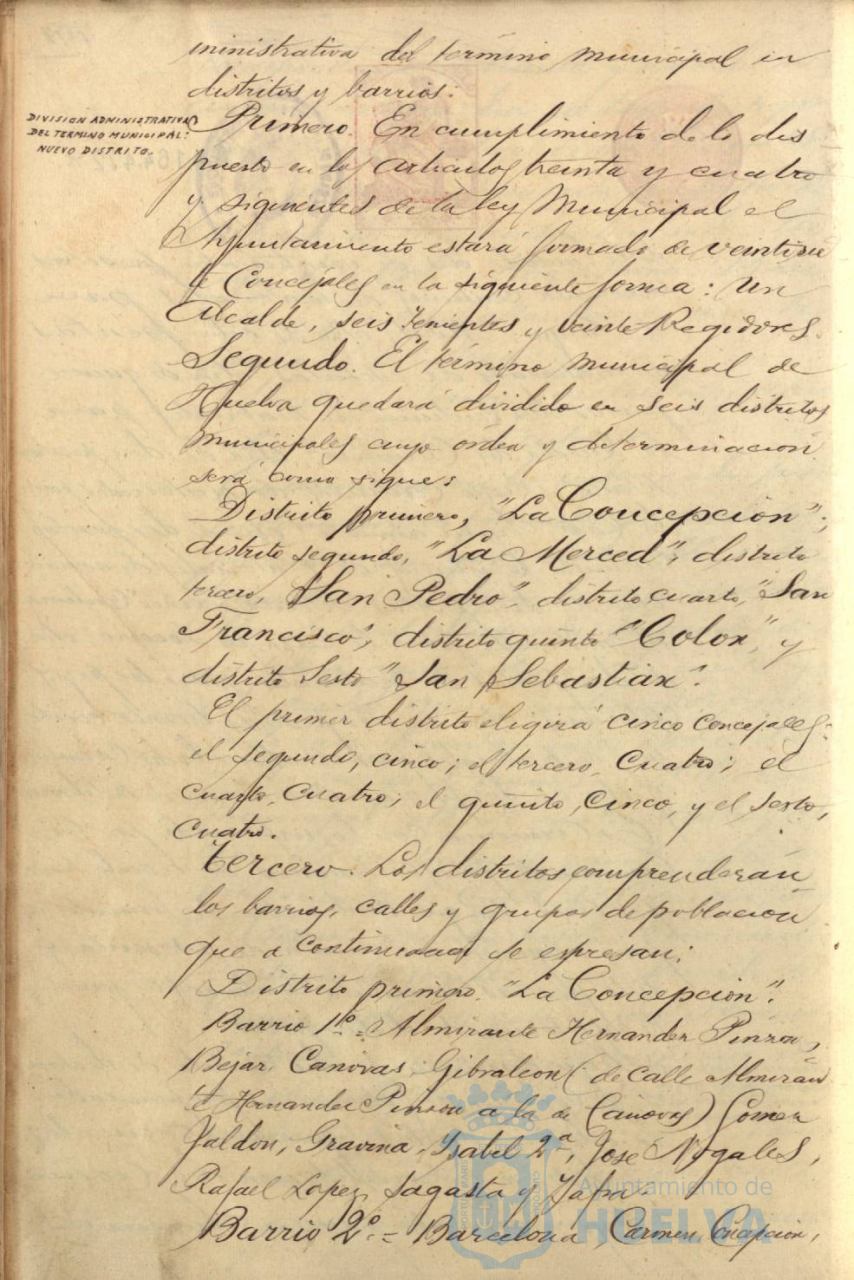 ministrativa del término municipal en
distritos y barrios:
DIVISION ADMINISTRATIVA
DEL TERMINO MUNICIPAL:
NUEVO DISTRITO.
Primero. En cumplimiento de lo dis
puesto en los artículos treinta y cuatro
y siguientes de la ley Municipal el
Ayuntamiento estará formado de veintisie
te Concejales en la siguiente forma: Un
Alcalde, seis Tenientes y veinte Regidores.
Segundo. El término municipal de
Huelva quedará dividido en seis distritos
municipales cuyo órden y determinación
será como sigue:
Distrito primero, "La Concepción";
distrito segundo, "La Merced"; distrito
tercero, "San Pedro"; distrito cuarto, "San
Francisco"; distrito quinto "Colon", y
distrito Sexto "San Sebastian".
El primer distrito eligirá cinco concejales:
el segundo, cinco; el tercero, cuatro; el
cuarto, cuatro; el quinto, cinco, y el sexto,
cuatro.
Tercero. Los distritos comprenderán
los barrios, calles y grupos de población
que a continuación se espresan:
Distrito primero. "La Concepción".
Barrio 1º = Almirante Hernandez Pinzon,
Bejar, Canovas, Gibraleon (de calle Almiran
te Hernandez Pinzon a la de Canovas) Gomez
Jaldon, Gravina, Ysabel 2ª, Jose Nogales,
Rafael Lopez, Sagasta y
Barrio 2º = Barcelona, Carmen, Concepcion,
Ayuntamiento de
HUELVA